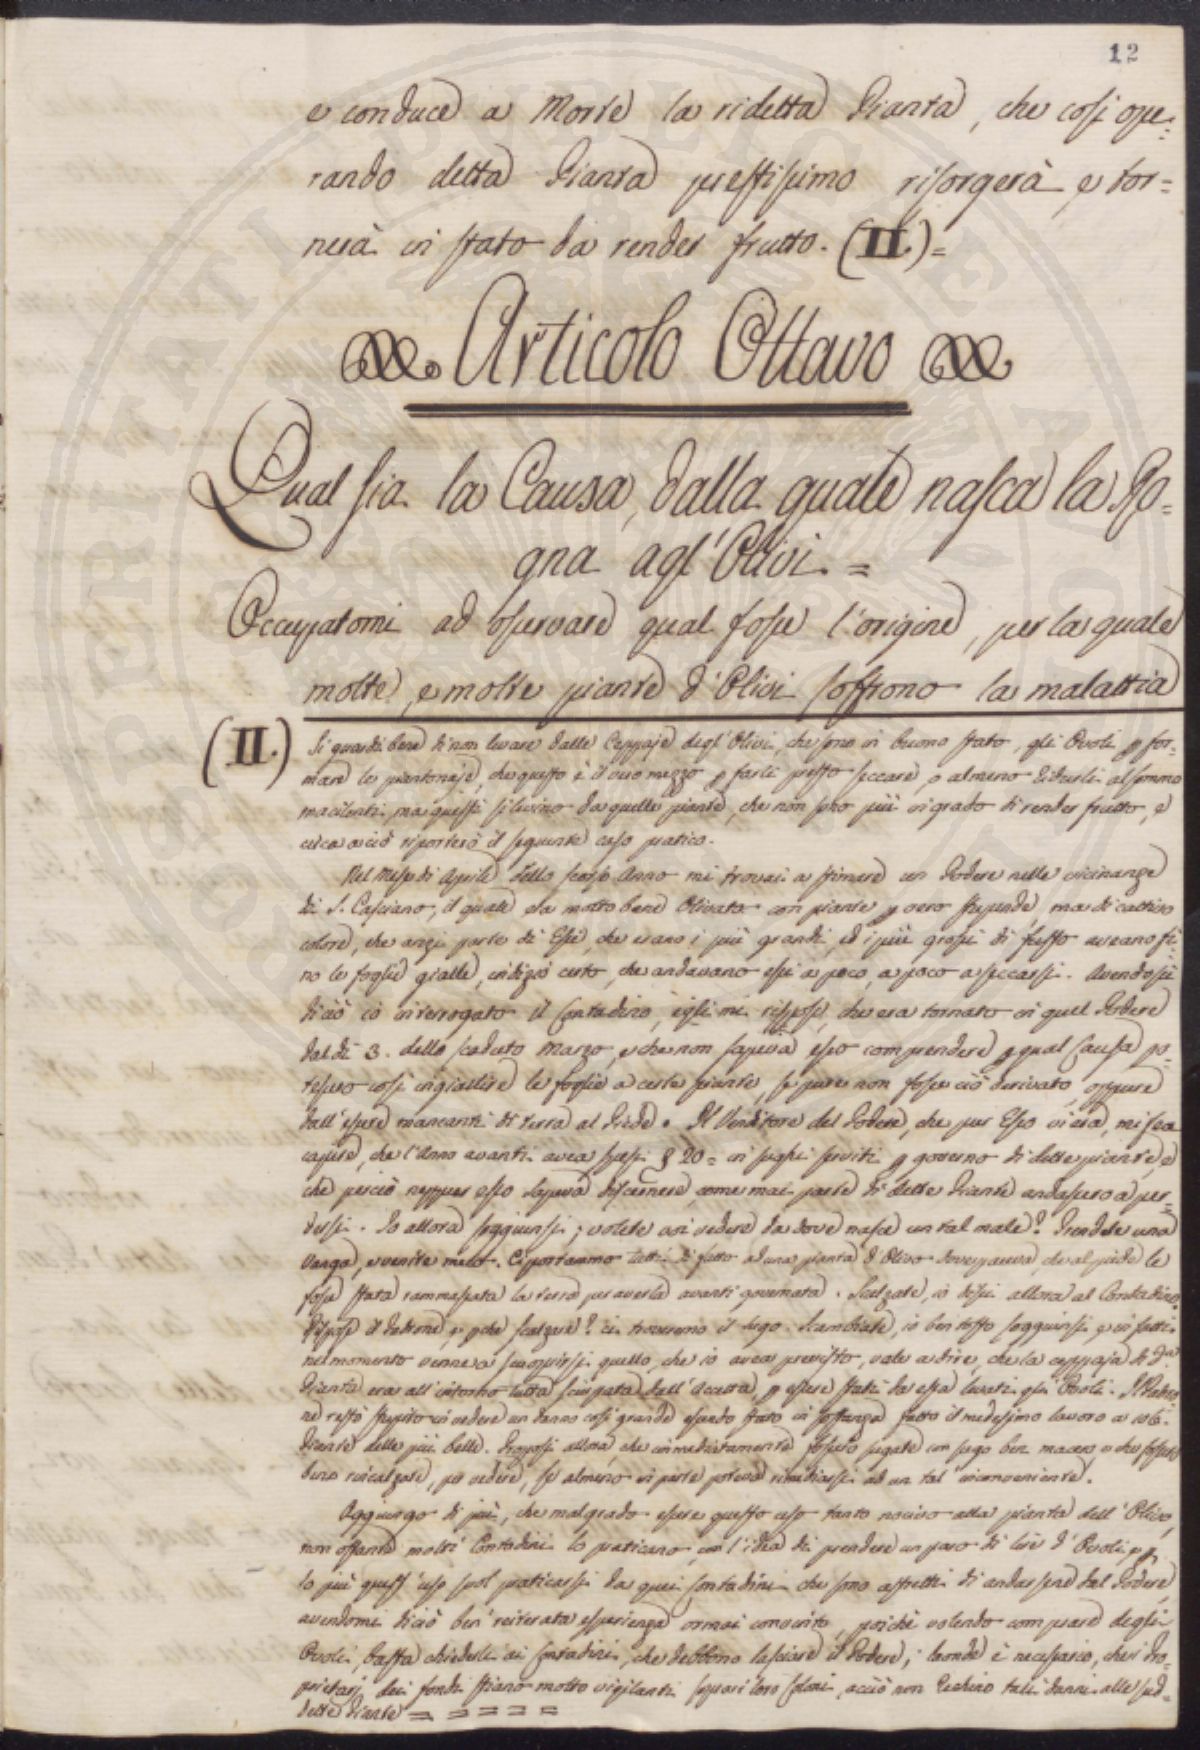 12
e conduce a Morte la ridetta Pianta, che cosi ope=
rando detta Pianta prestissimo risorgerà e tor=
nerà in stato da render frutto. (II.)=
Articolo Ottavo
Qual sia la Causa, dalla quale nasca la Ro=
gna agl'Olivi.=
Occupatomi ad osservare qual fosse l'origine, per la quale
molte, e molte piante d'Olivi soffrono la malattia
(II.) Si guardi bene di non levare dalle Ceppaje degl'Olivi, che sono in buono stato, gli Ovoli p for=
mare le piantonaje, che questo è il vero mezzo p farli presto seccare, o almeno ridurli al sommo
macilenti, mai questi si levino da quelle piante, che non sono più in grado di render frutto, e
circa a ciò riporterò il seguente caso pratico.
Nel Mese di Aprile dello scorso Anno mi trovai a stimare un Podere nelle vicinanze
di S. Casciano, il quale era molto bene Olivato con piante p vero stupende ma di cattivo
colore, che anzi parte di Esse, che erano i più grandi, ed i più grossi di fusto aveano fi=
no le foglie gialle, indizio certo, che andavano essi a poco, a poco a seccarsi. Avendo su
di ciò io interrogato il Contadino, egli mi rispose, che era tornato in quel Podere
dal dì 3. dello scaduto Marzo, e che non sapeva esso comprendere p qual causa po=
tessero così ingiallire le foglie a certe piante, se pure non fosse ciò derivato, oppure
dall'essere mancanti di terra al Piede. Il Venditore del Podere, che pur Esso vi era, mi fea
capire, che l'Anno avanti avea spesi 20= in sughi serviti p governo di dette piante, e
che perciò neppur esso sapeva discernere, come mai parte di dette Piante andassero a per=
dersi. Io allora soggiunsi; volete voi vedere da dove nasce un tal male? Prendete una
Vanga, e venite meco. Ci portammo tutti di fatto ad una pianta d'Olivo dove pareva, che al piede le
fosse stata rammassata la terra per averla avanti governata. Scalzate, io dissi allora al Contadino.
Rispose il Padrone, e pchè scalzare? ci troveremo il sugo. Scambiate, io ben tosto soggiunsi e in fatti
nel momento venne a scuoprirsi quello, che io avea previsto, vale a dire, che la ceppaja di da
Pianta era all'intorno tutta sciupata dall'Accetta, p essere stati da essa levati gli Ovoli. Il Padro
ne restò stupito in vedere un danno così grande essendo stato in sostanza fatto il medesimo lavoro a
Piante delle più belle. Proposi allora, che immediatamente fossero sugate con sugo ben macero, e che fossero
bene rincalzate, per vedere, se almeno in parte poteva rimediarsi ad un tal inconveniente.
Aggiungo di più, che malgrado essere questo uso tanto nocivo alla pianta dell'Olivo,
non ostante molti Contadini lo praticano con l'idea di prendere un paro di lire d'Ovoli, e p
lo più quest'uso suol praticarsi da quei Contadini che sono astretti di andarsene dal Podere,
avendomi di ciò ben reiterata esperienza ormai convinto, poichè volendo comprare degli
Ovoli, basta chiederli ai Contadini, che debbono lasciare il Podere; laonde è necessario, che i Pro=
prietarj dei fondi stiano molto vigilanti sopra i loro Coloni, acciò non rechino tali danni alle sud=
dette Piante = = = = =